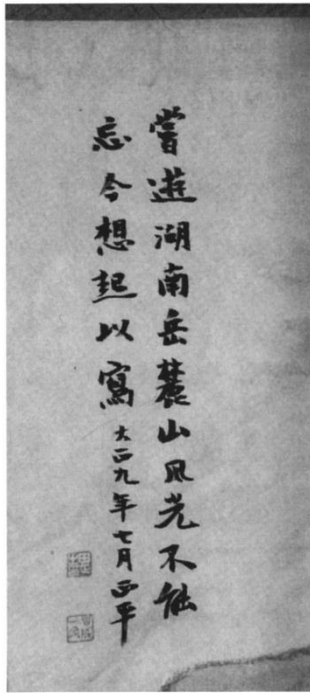 嘗遊湖南岳麓山風光不能
忘今想起以寫大正九年七月正平